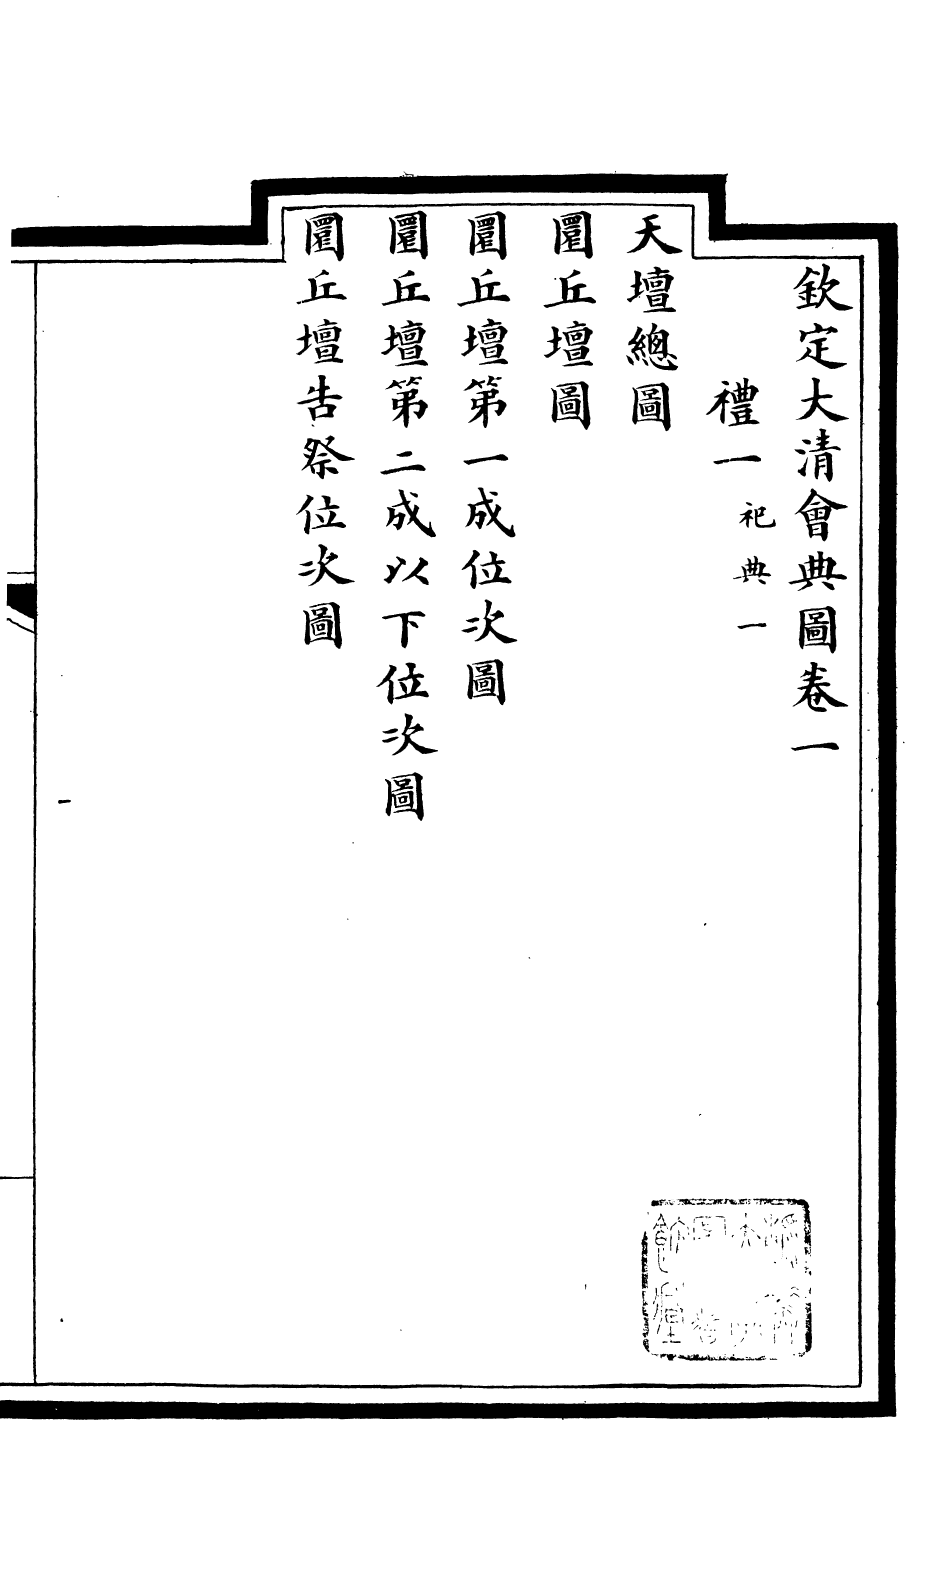 欽定大清會典圖卷一
禮一 祀典一
天壇總圖
圜丘壇圖
圜丘壇第一成位次圖
圜丘壇第二成以下位次圖
圜丘壇告祭位次圖